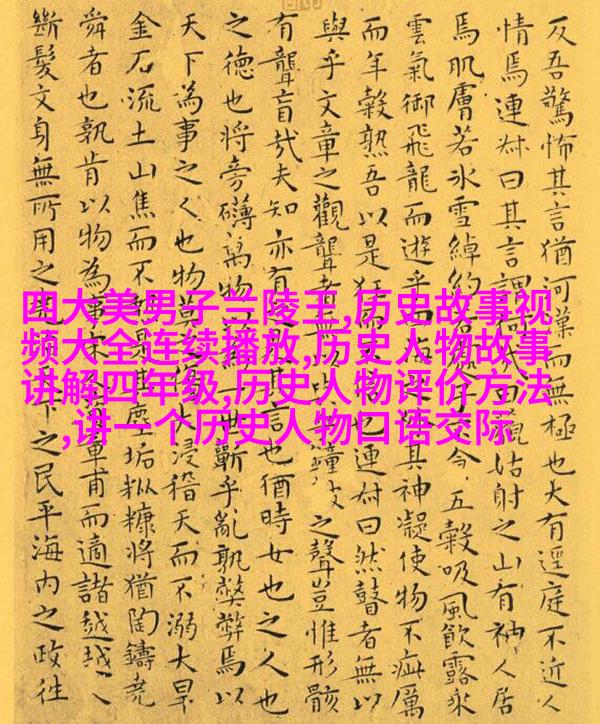 四大美男子兰陵王,历史故事视
频大全连续播放,历史人物故事
讲解四年级,历史人物评价方法
,讲一个历史人物口语交际
反吾驚怖其言猶河漢而無極也大有逕庭不近人
情焉連叔曰其言謂何哉曰藐姑射之山有神人居
焉肌膚若氷雪綽約五穀吸風飲露乘
雲氣御飛龍而遊乎其神凝使物不疵厲
而年穀熟吾以是狂而也連叔曰然瞽者無以
與乎文章之觀聾者無以鐘鼓之聲豈惟形骸
有聾盲哉夫知亦有之其言也猶時女也之人也
之德也將旁礴萬物一世蘄乎亂孰弊弊焉以
天下為事之人也物莫之傷大浸稽天而不溺大旱
金石流土山焦而不是其塵垢粃糠將猶陶鑄堯
舜者也孰肯以物為事宋人章甫而適諸越越人
斷髮文身無所用之堯下之民平海內之政往